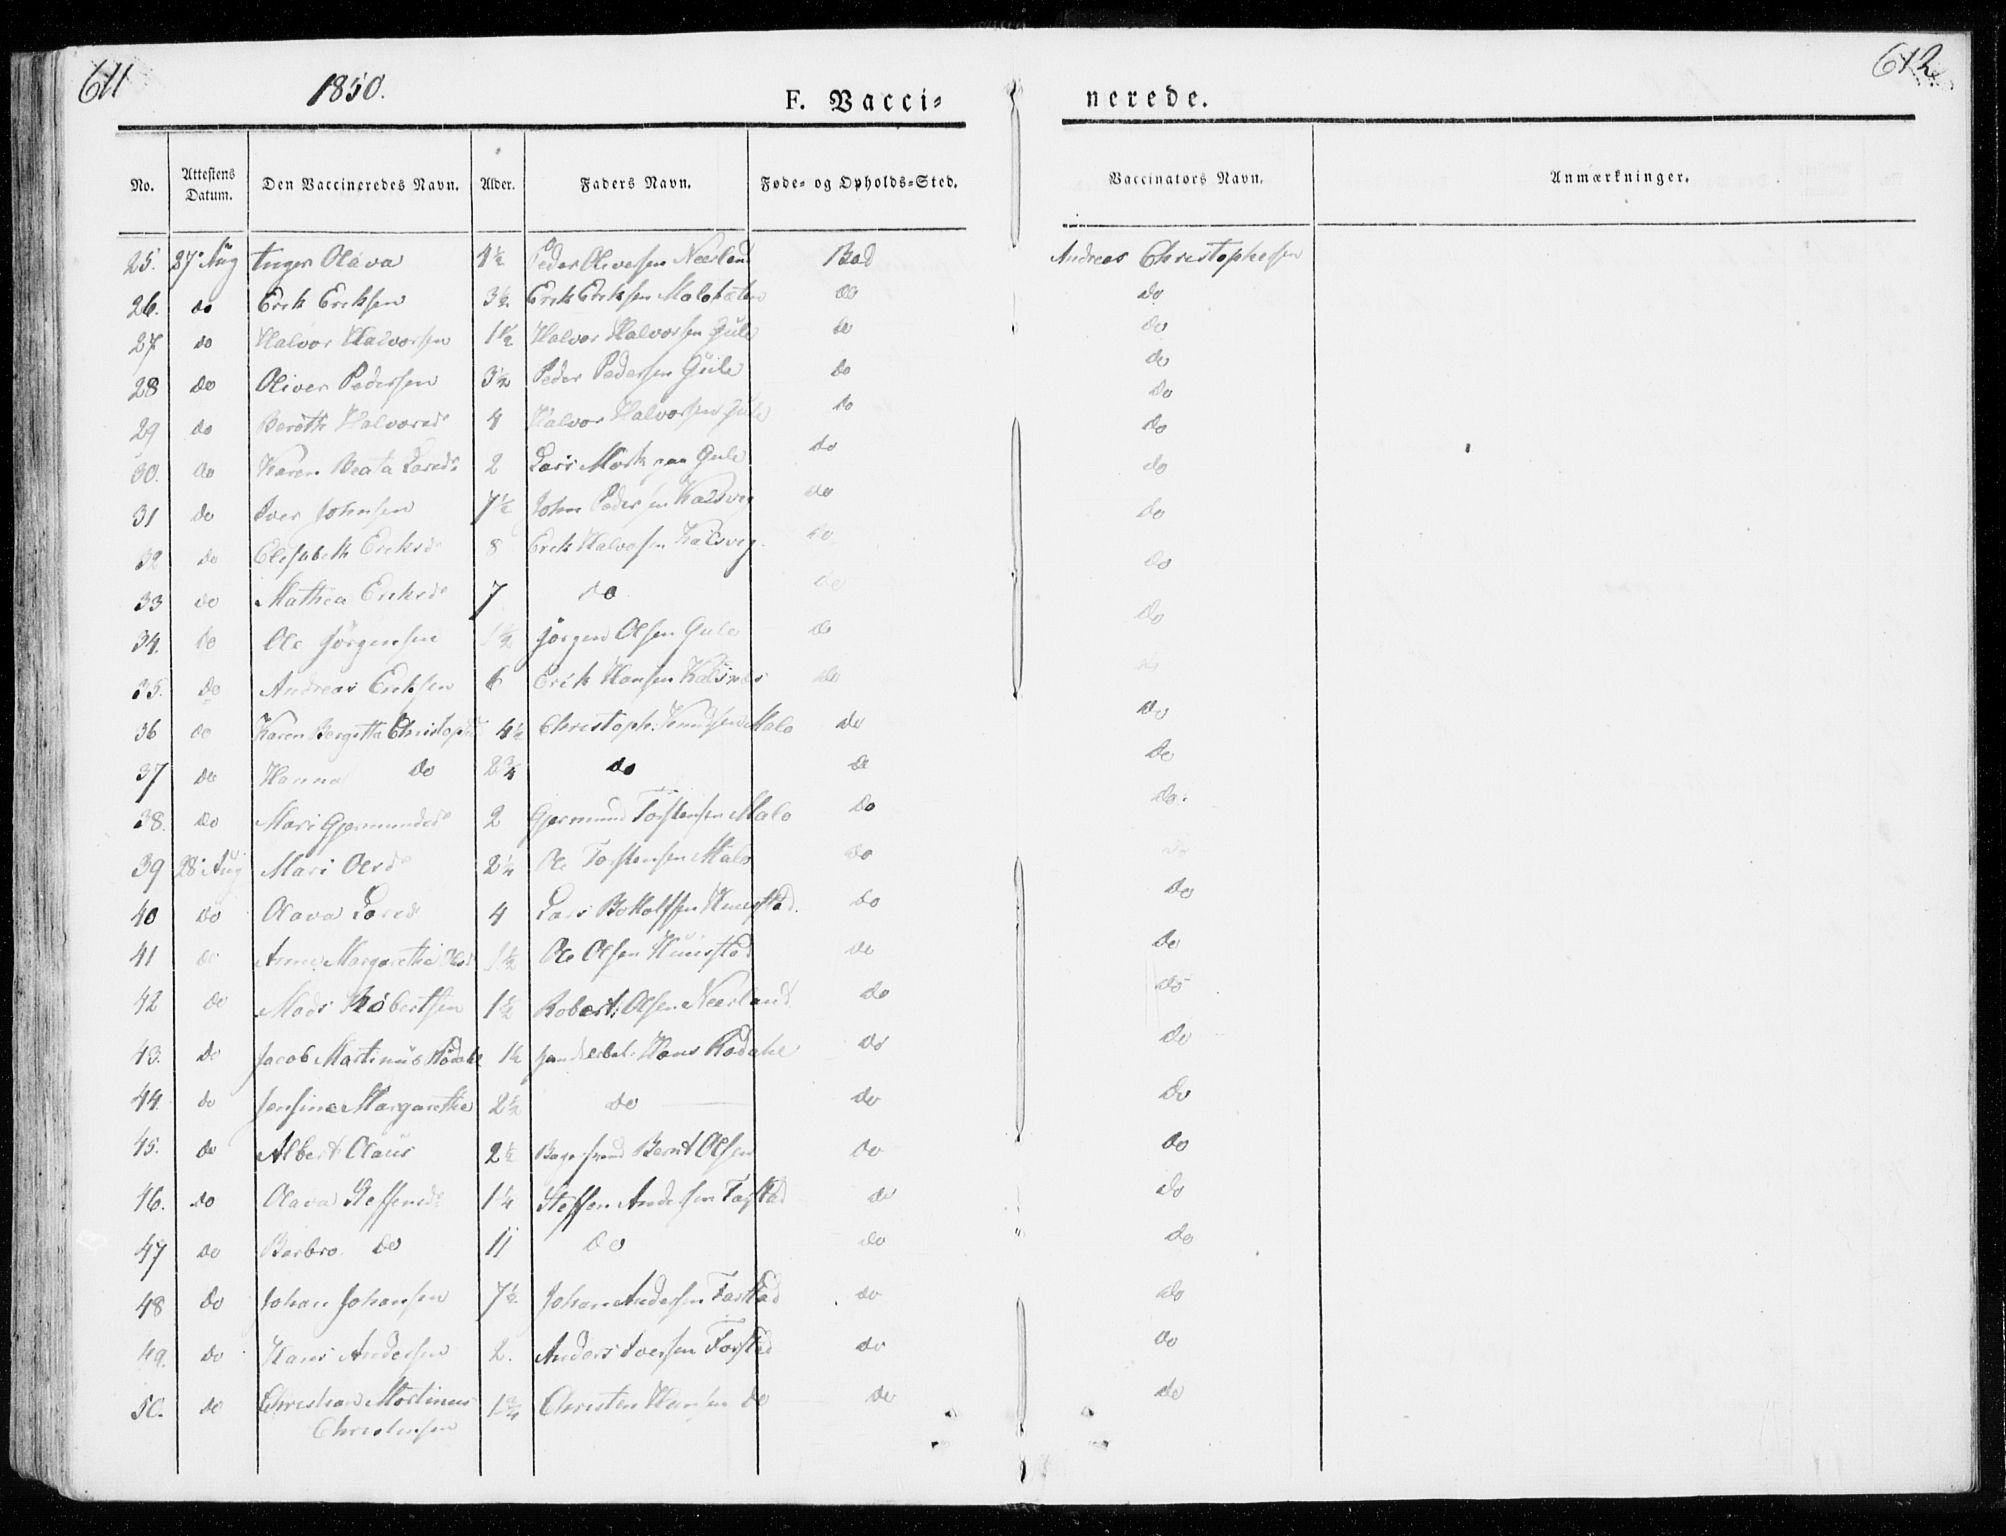 611
1850.
F. Vacci=
nerede.
612
No. Attestens Datum. Den Vaccineredes Navn. Alder. Faders Navn. Føde= og Opholds=Sted. Vaccinators Navn. Anmærkninger.
25. 27 Aug Inger Olava 4½ Peder Olivesen Neerland Bod Andreas Christophersen
26. do Erik Eriksen 3½ Erik Eriksen do do
27 do Halvor Halvorsen 1½ Halvor Halvorsen Gule do do
28 do Oliver Pedersen 3½ Peder Pedersen Gule do do
29 do Berethe Halvorsd 4 Halvor Halvorsen Gule do do
30. do Karen Beata Larsd 2 Lars Mork paa Gule do do
31 do Iver Johnsen 7½ John Pedersen Kalsvig do do
32 do Elisabeth Eriksd 8 Erik Halvorsen Kalsvig do do
33 do Mathea Eriksd 7 do do do
34. do Ole Jörgensen 1½ Jörgen Olsen Gule do do
35. do Andreas Eriksen 6 Erik Hansen Kalsnes do do
36 do Karen Bergitta Christophd 4½ Christoph. Knudsen Malo do do
37 do Hanna do 2¾ do do do
38. do Mari Gjermundsd 2 Gjermund Torstensen Malo do do.
39 28 Aug Mari Olsd 2¼ Ole Torstensen Malo do do
40 do Olava Larsd 4 Lars Botholfsen Hunstad. do do
41 do Anne Margarethe Olsd 1½ Ole Olsen Hunstad do do
42 do Mads Robertsen 1½ Robert Olsen Neerland do do
43. do Jacob Martinus Rödahl 1½ Hans Rodahl do do
44 do Jensine Margarethe 2½ do do do
45. do Albert Olaus 2½ Bernt Olsen do do
46. do Olava Steffensd 1¼ Steffen Andersen Farstad do do
47 do Barbro do 11 do do do
48 do Johan Johansen 7½ Johan Andersen Farstad do do
49. do Hans Andersen 2. Anders Iversen Farstad do do
50. do Christian Martinus 1¾ Christen Hansen do do do
Christensen